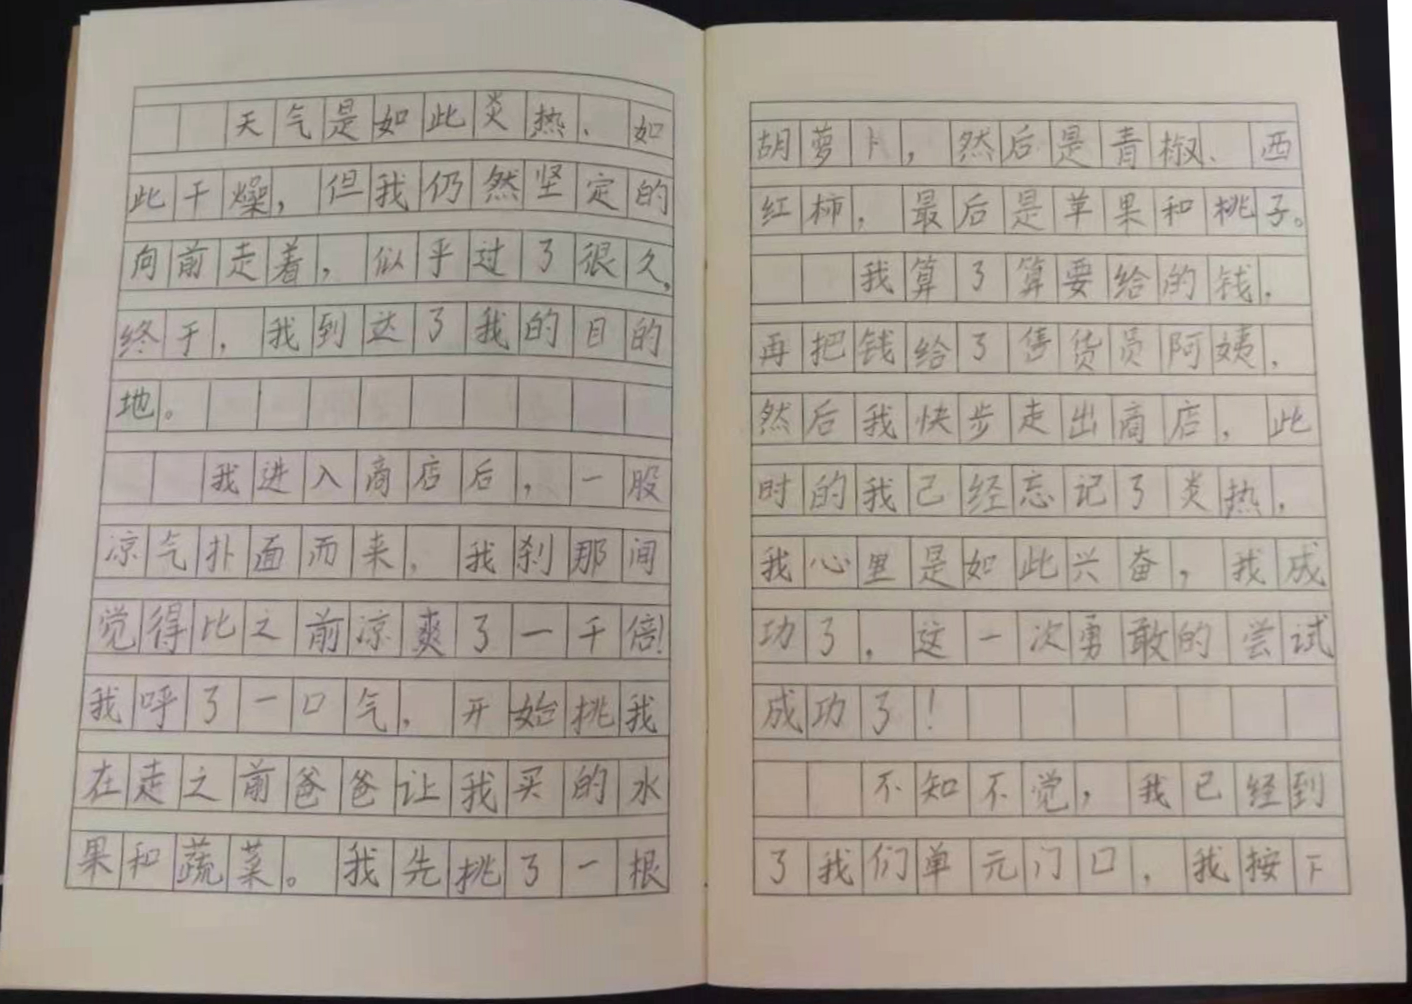 天气是如此炎热、如
此干燥，但我仍然坚定的
向前走着，似乎过了很久，
终于，我到达了我的目的
地。
我进入商店后，一股
凉气扑面而来，我刹那间
觉得比之前凉爽了一千倍！
我呼了一口气，开始挑我
在走之前爸爸让我买的水
果和蔬菜。我先挑了一根
胡萝卜，然后是青椒、西
红柿，最后是苹果和桃子。
我算了算要给的钱，
再把钱给了售货员阿姨，
然后我快步走出商店，此
时的我已经忘记了炎热，
我心里是如此兴奋，我成
功了，这一次勇敢的尝试
成功了！
不知不觉，我已经到
了我们单元门口，我按下